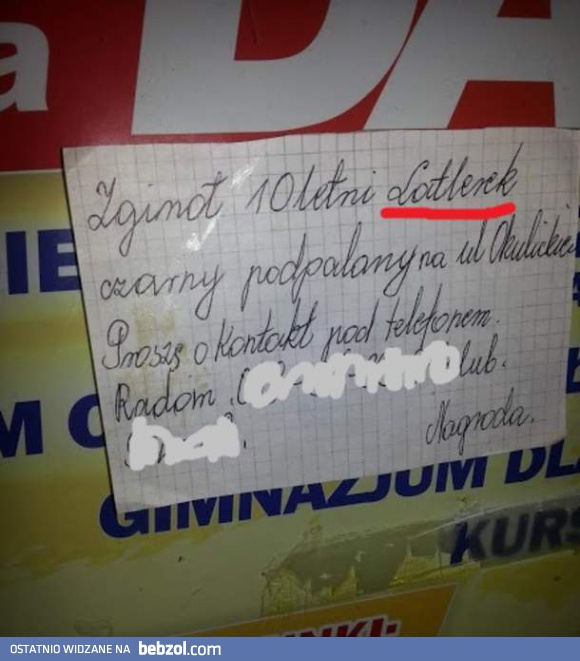 a DA
Zginoł 10 letni Latlerek
czarny podpalany na ul Okulickie
Proszę o Kontakt pod telefonem.
Radom lub.
Nagroda.
GIMNAZJUM DLA
KURS
OSTATNIO WIDZANE NA bebzol.com